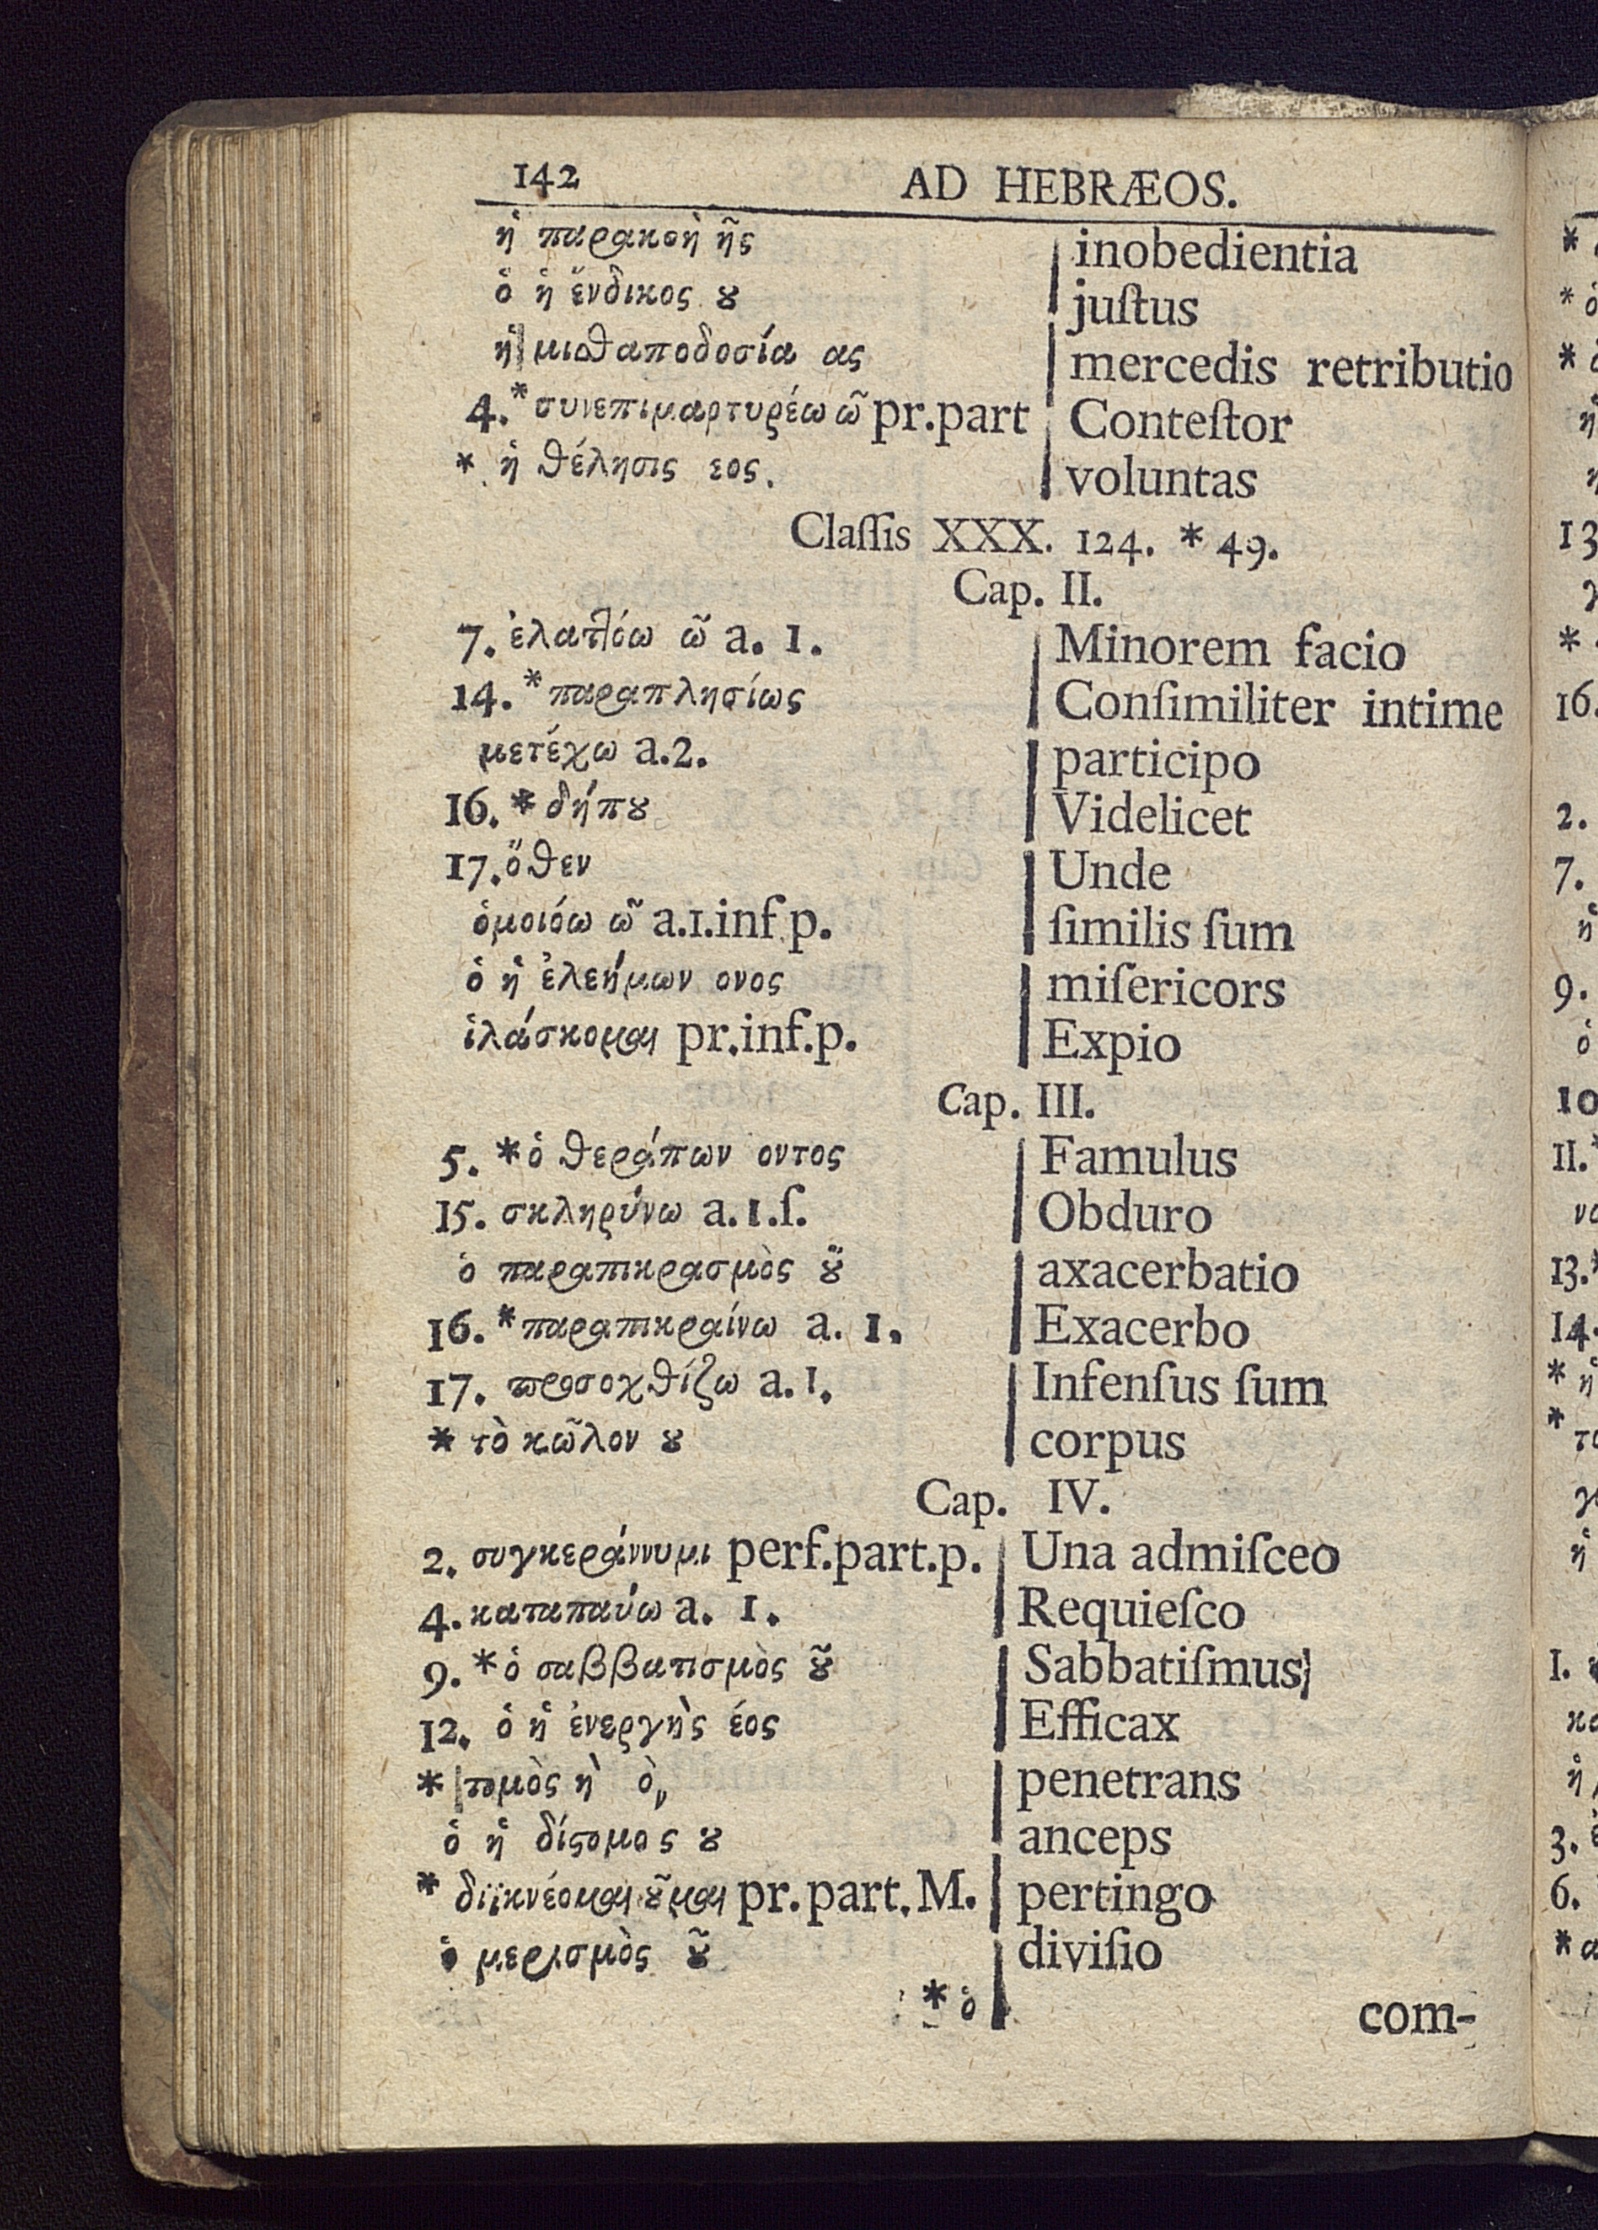 142 AD HEBRÆOS.
ἡ παρακοὴ ῆς inobedientia
ὁ ἡ ἔνδικος ȣ juſtus
ἡ μιϑαποδοσία ας mercedis retributio
4.* συνεπιμαρτυρέω ῶ pr.part Conteſtor
* ἡ θέλησις εος. voluntas
Claſſis XXX. 124. * 49.
Cap. II.
7. ἐλατλόω ῶ a. 1. Minorem facio
14. * παραπλησίως Conſimiliter intime
μετέχω a.2. participo
16. * δήπȣ Videlicet
17. ὅθεν Unde
ὁμοιόω ῶ a.1.inf p. ſimilis ſum
ὁ ἡ ἐλεήμων ονος miſericors
ἱλάσκομαι pr.inf.p. Expio
Cap. III.
5. * ὁ θεράπων οντος Famulus
15. σκληρύνω a.1.ſ. Obduro
ὁ παραπικρασμὸς ȣ͂ axacerbatio
16. * παραπικραίνω a. 1. Exacerbo
17. προσοχθίζω a.1. Infenſus ſum
* τὸ κῶλον ȣ corpus
Cap. IV.
2. συγκεράννυμι perf.part.p. Una admiſceo
4. καταπαύω a. 1. Requieſco
9. * ὁ σαββατισμὸς ȣ͂ Sabbatiſmus
12. ὁ ἡ ἐνεργὴς έος Efficax
* τομὸς ὴ ὸν penetrans
ὁ ἡ δίϛομος ȣ anceps
* διϊκνέομαι ȣ͂μαι pr.part.M. pertingo
ὁ μερισμὸς ȣ͂ diviſio
* ὁ com-